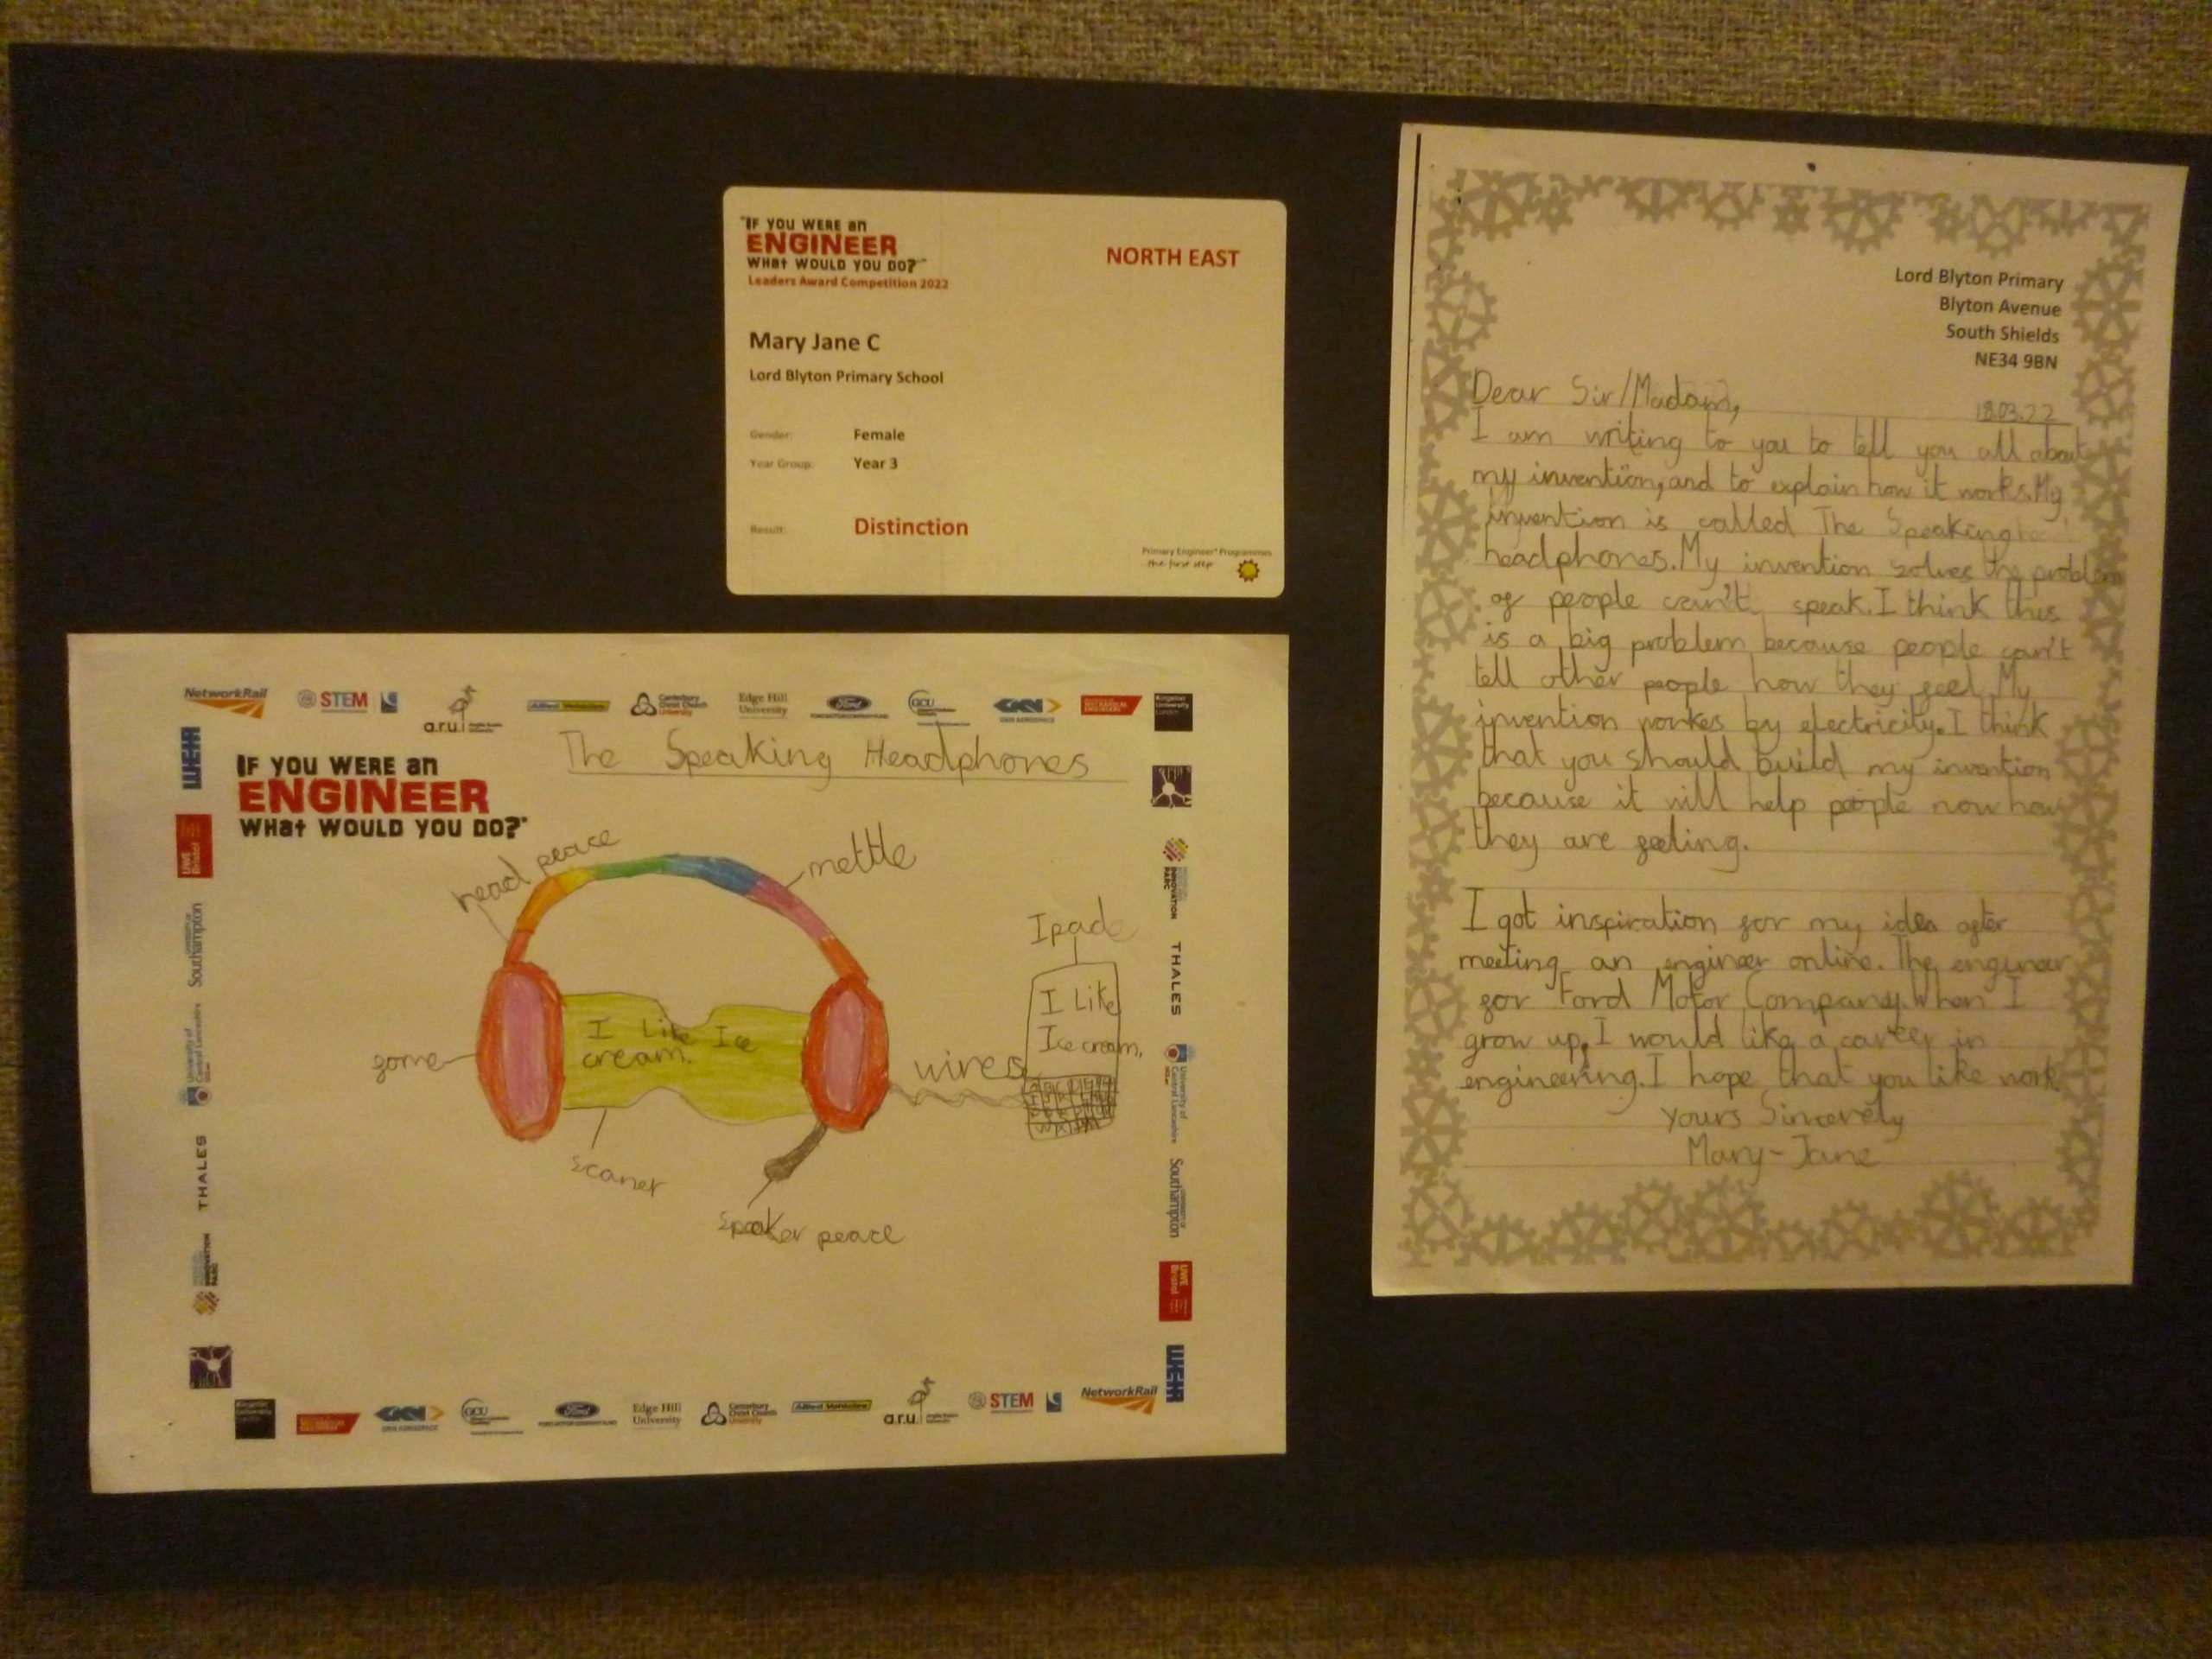 "IF YOU WERE an
ENGINEER
WHat WOULD YOU DO?"
Leaders Award Competition 2022
NORTH EAST
Mary Jane C
Lord Blyton Primary School
Gender: Female
Year Group: Year 3
Result: Distinction
Primary Engineer® Programmes
the first step
NetworkRail
STEM
a.r.u.
Allied Vehicles
Canterbury
Christ Church
University
Edge Hill
University
Ford
GCU
GKN
GKN AEROSPACE
Kingston
University
London
WEIR
UWE
Bristol
Southampton
University of
Central Lancashire
THALES
INNOVATION
PARC
IF YOU WERE an
ENGINEER
WHat WOULD YOU DO?"
The Speaking Headphones
head peace
mettle
Ipade
I Like
Ice cream.
I Like Ice
cream.
fome
wires
scaner
speaker peace
INNOVATION
PARC
THALES
University of
Central Lancashire
Southampton
UWE
Bristol
WEIR
Kingston
University
London
GKN
GKN AEROSPACE
GCU
Ford
Edge Hill
University
Canterbury
Christ Church
University
Allied Vehicles
a.r.u.
STEM
NetworkRail
Lord Blyton Primary
Blyton Avenue
South Shields
NE34 9BN
Dear Sir/Madam,
18.03.22
I am writing to you to tell you all about
my invention, and to explain how it works. My
invention is called The Speaking
headphones. My invention solves the problem
of people can't speak. I think this
is a big problem because people can't
tell other people how they feel. My
invention workes by electricity. I think
that you should build my invention
because it will help people now how
they are feeling.
I got inspiration for my idea after
meeting an engineer online. The engineer
for Ford Motor Company. When I
grow up, I would like a career in
engineering. I hope that you like work.
Yours Sincerely
Mary-Jane